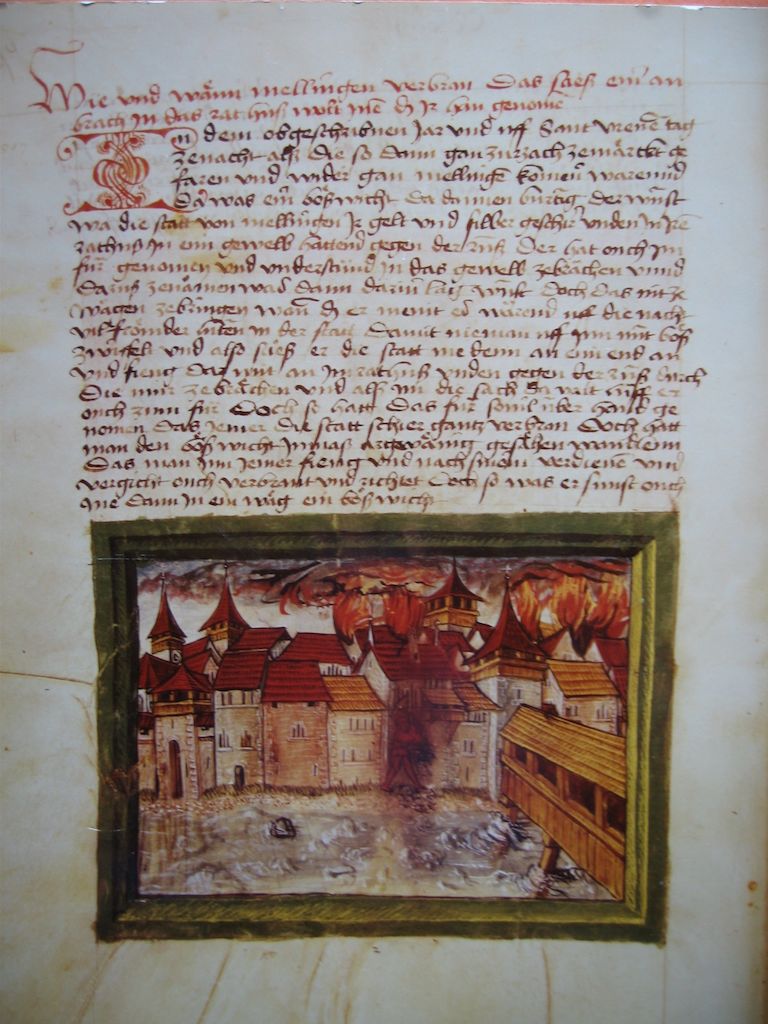 Wie und wänn mellingen verbran Das sasß ein an
brach in das rat huß wolt ine
In dem obgeschribnen Jar und uff Sant vrenē tag
zenacht alß die so dann gan zurzach zemärckt ge
faren und wider gan mellingē komen warennd
Da was ein bößwicht da dannen burtig der wust
wa die statt von mellingen Jr gelt und silber geschir unden in Jrē
rathuß In eim gewelb hattend gegen der rüß Der hat ouch Im
für genomen und understund In das gewelb zebrächen unnd
Daruß zenämen was dann darin lag Doch das nit ze
wägen zebringen wan er meint es wärend uff die nacht
vil frömder lütten in der statt Damit nieman uff Inn nütt böß
zwifelt und also stieß er die statt me denn an eim end an
und fieng das an Im rathuß unden gegen der rüß durch
Die mur zebrächen und alß Im die sach
ouch zum für Doch so hatt das für souil über hand ge
nomen das Jemer die statt schier gantz verbran Doch hatt
man den bößwicht Inmaß argwänig gesächen
Das man Inn Jemer fieng und nach sinem verdienē und
vergicht ouch verbrant und richtet Doch so was er sunst ouch
me dann In ein wäg ein bößwicht